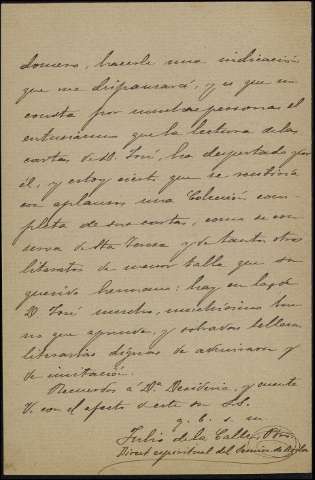 donero, hacerle una indicación
que me dispensará, y es que me
consta por muchas personas el
entusiasmo que la lectura de las
cartas de D. José, ha despertado por
él, y estoy cierto que se recibiría
con aplauso una Colección com-
pleta de sus cartas, como se con-
serva de Sta Teresa y de tantos otros
literatos de menor talla que su
querido hermano: hay en las de
D. José mucho, muchísimo bue-
no que aprender, y sobradas bellezas
literarias dignas de admirarse y
de imitación.
Recuerdos á Dª Desideria, y cuente
V. con el afecto de este su S.S.
q. b. s. m
Julio de la Calle, Pbro.
Direct espiritual del